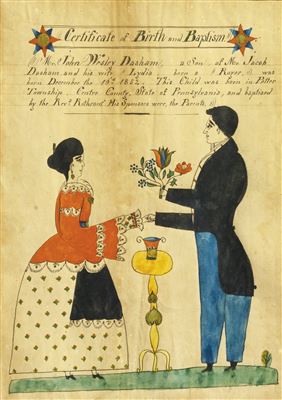 Certificate of Birth and Baptism
Mr. John Wesley Dasham, a Son of Mr. Jacob
Dasham and his wife Lydia born a Royer, was
born December the 19th 1852. This Child was born in Potter
Township, Centre County, State of Pennsylvania, and baptized
by the Revd His Sponsors were, the Parents.